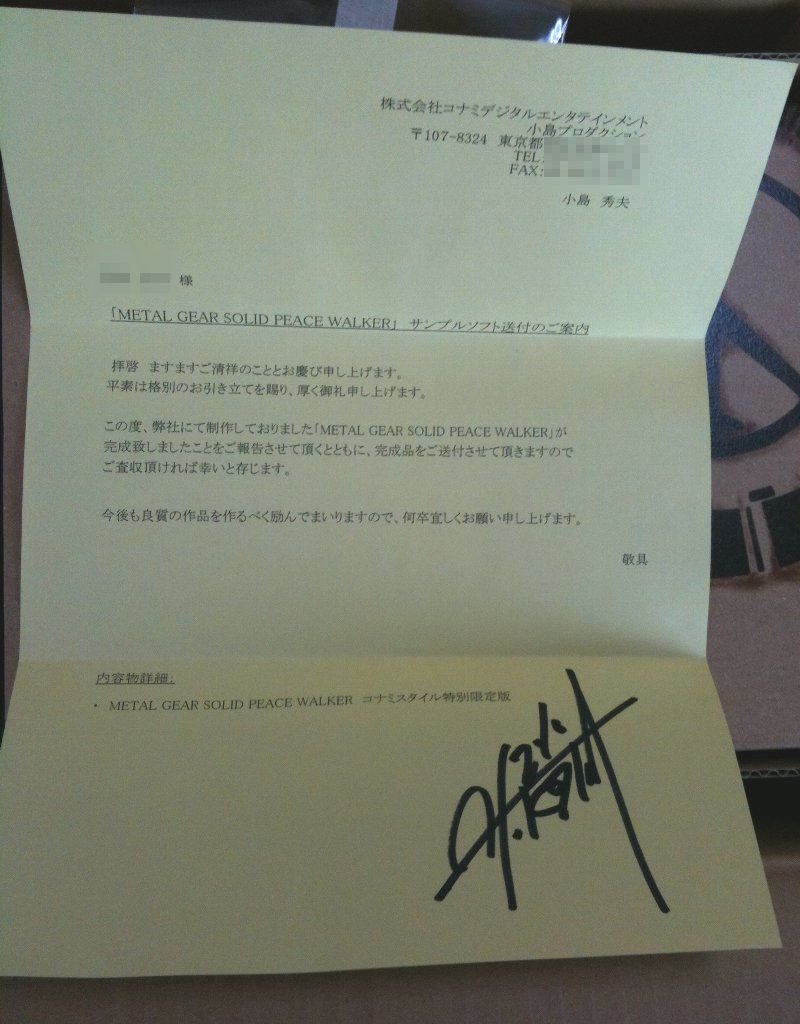 株式会社コナミデジタルエンタテインメント
小島プロダクション
〒107-8324 東京都
TEL:
FAX:
小島 秀夫
様
「METAL GEAR SOLID PEACE WALKER」 サンプルソフト送付のご案内
拝啓 ますますご清祥のこととお慶び申し上げます。
平素は格別のお引き立てを賜り、厚く御礼申し上げます。
この度、弊社にて制作しておりました「METAL GEAR SOLID PEACE WALKER」が
完成致しましたことをご報告させて頂くとともに、完成品をご送付させて頂きますので
ご査収頂ければ幸いと存じます。
今後も良質の作品を作るべく励んでまいりますので、何卒宜しくお願い申し上げます。
敬具
内容物詳細:
・ METAL GEAR SOLID PEACE WALKER コナミスタイル特別限定版